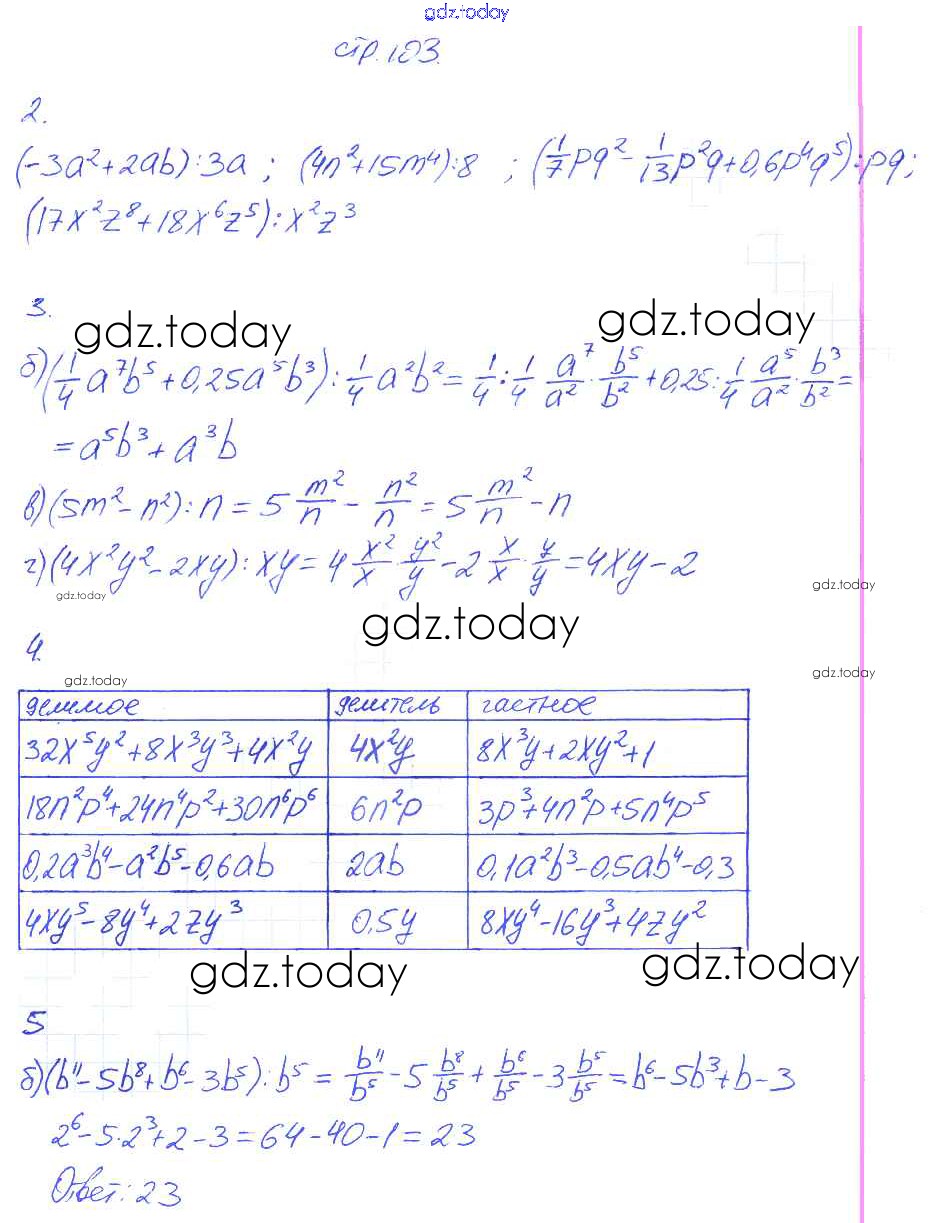 gdz.today
стр. 103.
2.
(-3a²+2ab):3a ; (4n²+15m⁴):8 ; (1/7pq²-1/13p²q+0,6p⁴q⁵):pq;
(17x²z⁸+18x⁶z⁵):x²z³
3.
gdz.today gdz.today
б)(1/4 a⁷b⁵+0,25a⁵b³):1/4 a²b²= 1/4:1/4 a⁷/a²·b⁵/b²+0,25:1/4 a⁵/a²·b³/b²=
=a⁵b³+a³b
в)(5m²-n²):n=5 m²/n - n²/n =5 m²/n -n
г)(4x²y²-2xy):xy=4 x²/x·y²/y -2 x/x·y/y =4xy-2
gdz.today gdz.today
gdz.today
4.
gdz.today gdz.today
делимое делитель частное
32x⁵y²+8x³y³+4x²y 4x²y 8x³y+2xy²+1
18n²p⁴+24n⁴p²+30n⁶p⁶ 6n²p 3p³+4n²p+5n⁴p⁵
0,2a³b⁴-a²b⁵-0,6ab 2ab 0,1a²b³-0,5ab⁴-0,3
4xy⁵-8y⁴+2zy³ 0,5y 8xy⁴-16y³+4zy²
gdz.today gdz.today
5
б)(b¹¹-5b⁸+b⁶-3b⁵):b⁵= b¹¹/b⁵ -5 b⁸/b⁵ + b⁶/b⁵ -3 b⁵/b⁵ =b⁶-5b³+b-3
2⁶-5·2³+2-3=64-40-1=23
Ответ: 23